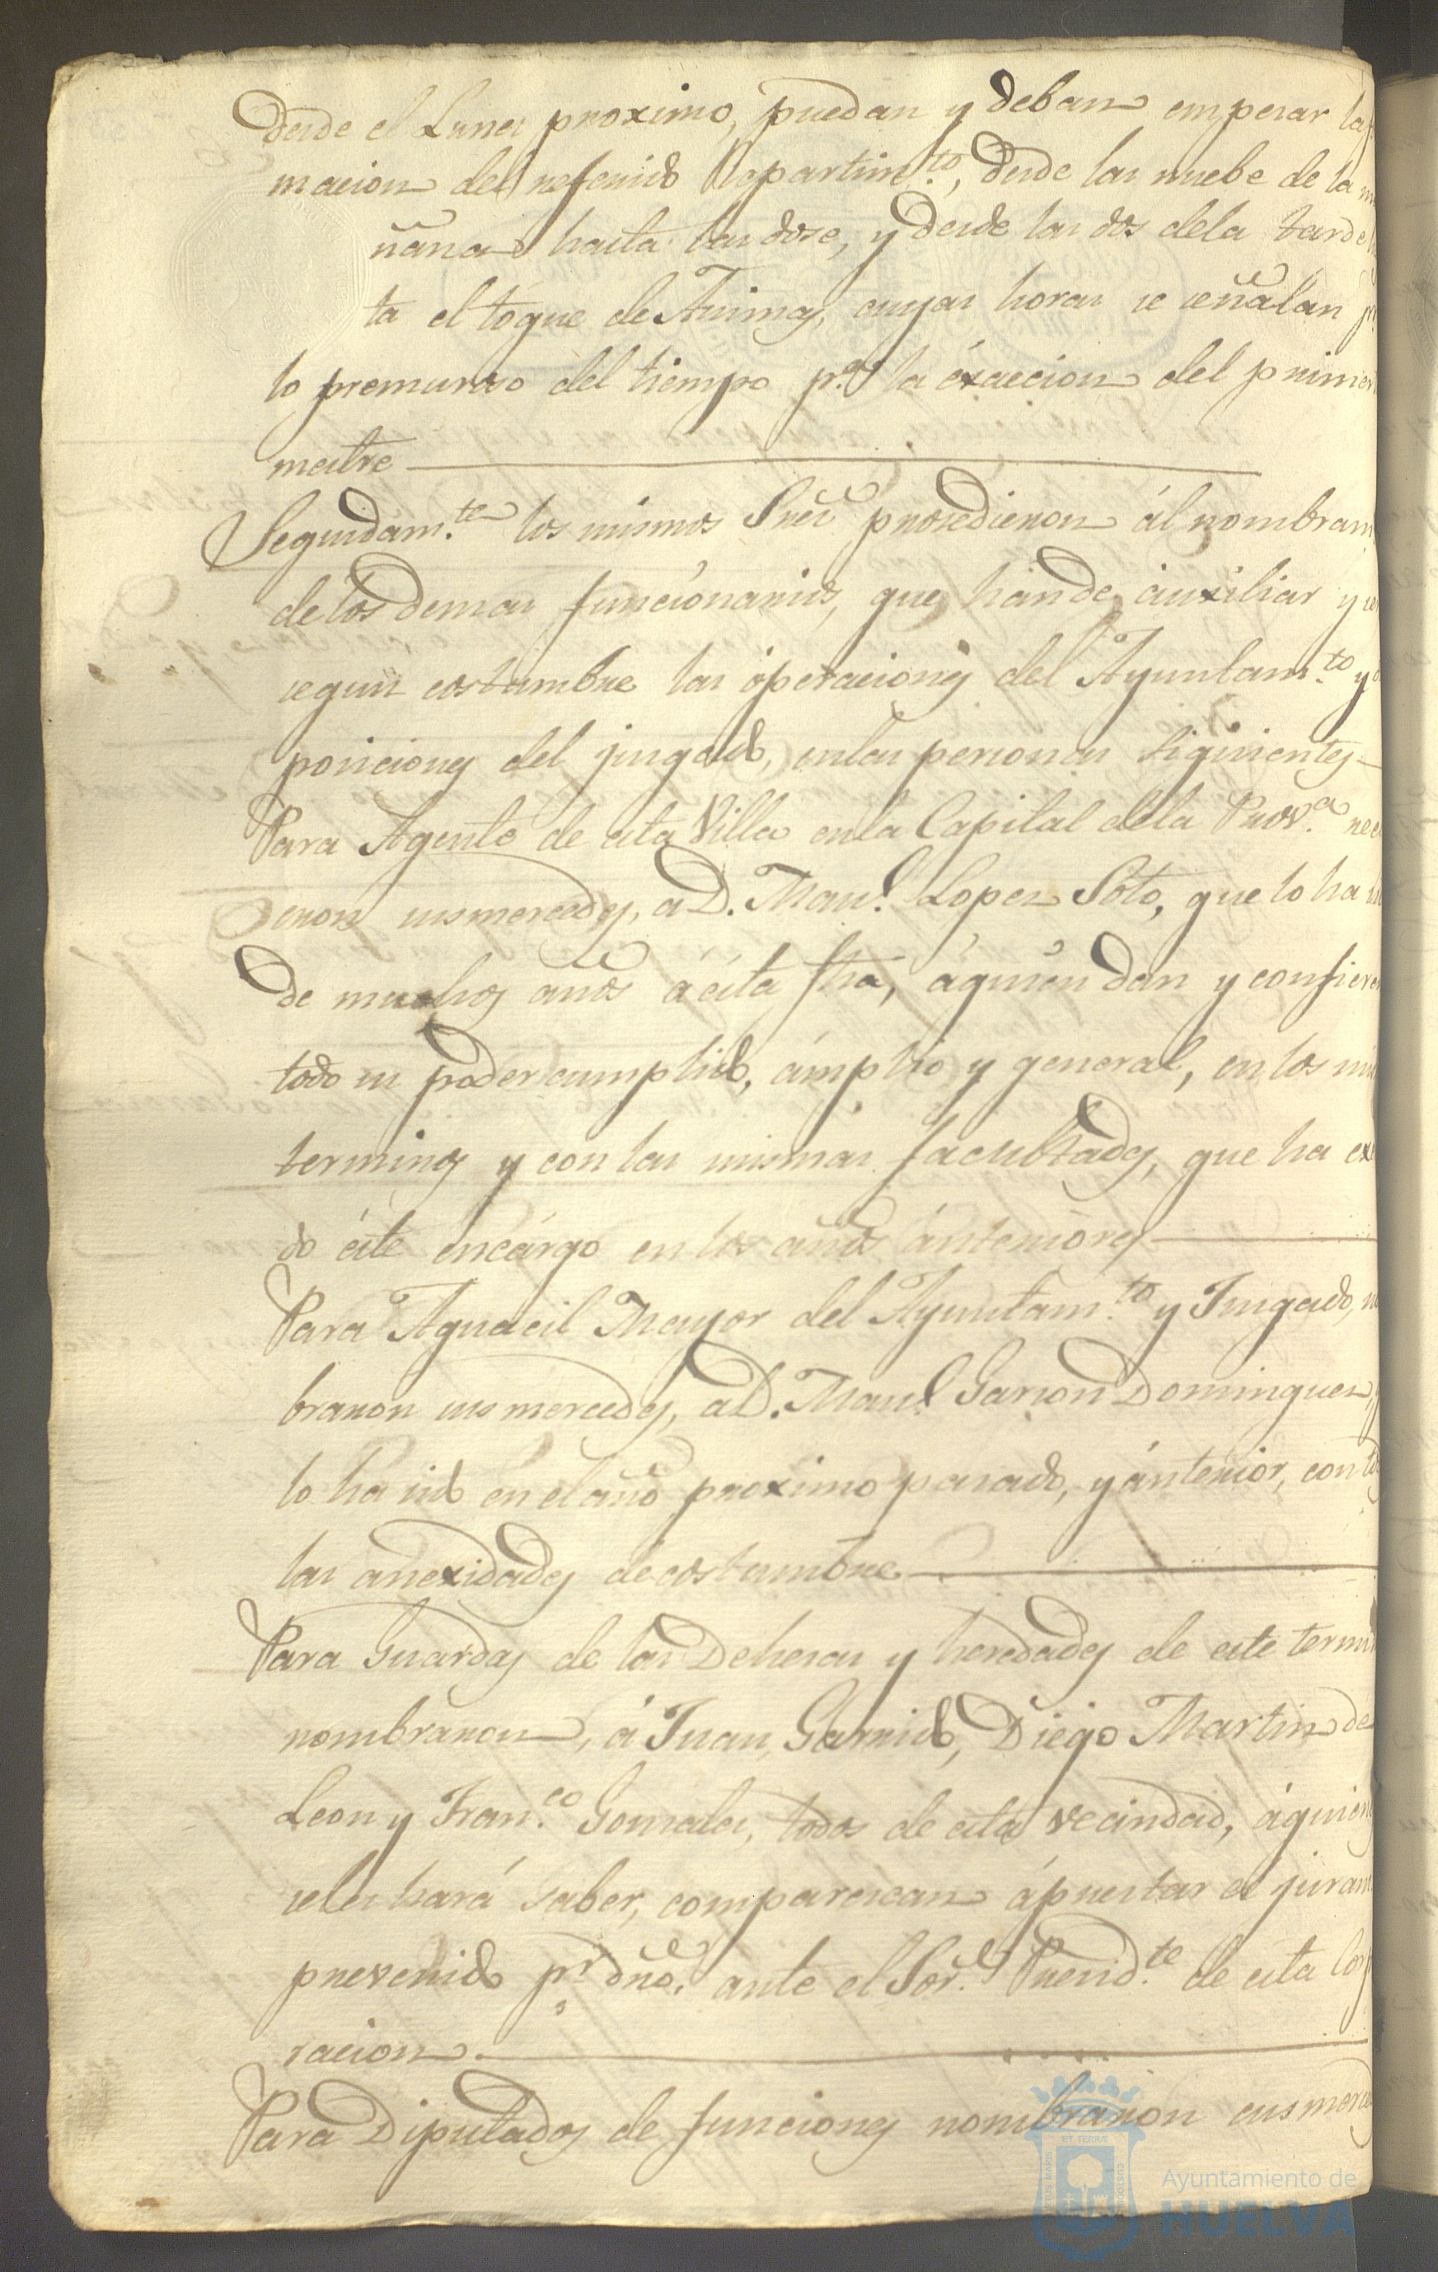 desde el Lunes proximo, puedan y deban empesar la
macion del referido Repartim.to, desde las nuebe de la ma
ñana hasta las dose, y desde las dos dela tarde
ta el toque de Animas, cuyas horas se señalan p.r
lo premuroso del tiempo p.a la éxaccion del primer
mestre
Seguidam.te los mismos Sres prosedieron ál nombram
delos demas funcionarios, que hande auxiliar y
segun costumbre las óperaciones del Ayuntam.to y
posiciones del jusgado, enlas personas siguientes
Para Agente de esta Villa enla Capital dela Prov.a
eron susmercedes, a D. Man.l Lopes Soto, que lo ha
de muchos años á ésta fha, áquien dan y confieren
todo su poder cumplido, ámplio y general, en los mis
terminos y con las mismas facultades, que ha exe
do éste encárgo en los años ánteriores
Para Aguacil Mayor del Ayuntam.to y Jusgado,
braron susmercedes, a D. Man.l Garson Dominguez,
lo ha sido en el año proximo pasado, y ánterior, con
las anexidades de costumbre
Para Guardas de las Dehesas y heredades de este termi
nombraron, á Juan Garrido, Diego Martin de
Leon y Fran.co Gonsales, todos de esta vecindad, áquienes
seles hará saber, comparescan áprestar el juram
prevenido p.r dro. ante el Sor. Presid.te de esta Corp
racion.
Para Diputados de funciones nombraron susmerced
Ayuntamiento de
HUELVA